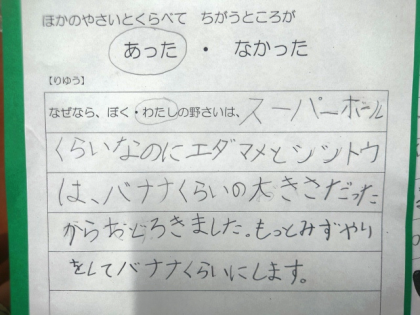 ほかのやさいとくらべて ちがうところが
あった ・ なかった
【りゆう】
なぜなら、ぼく・わたしの野さいは、スーパーボール
くらいなのにエダマメとシシトウ
は、バナナくらいの大きさだった
からおどろきました。もっとみずやり
をしてバナナくらいにします。